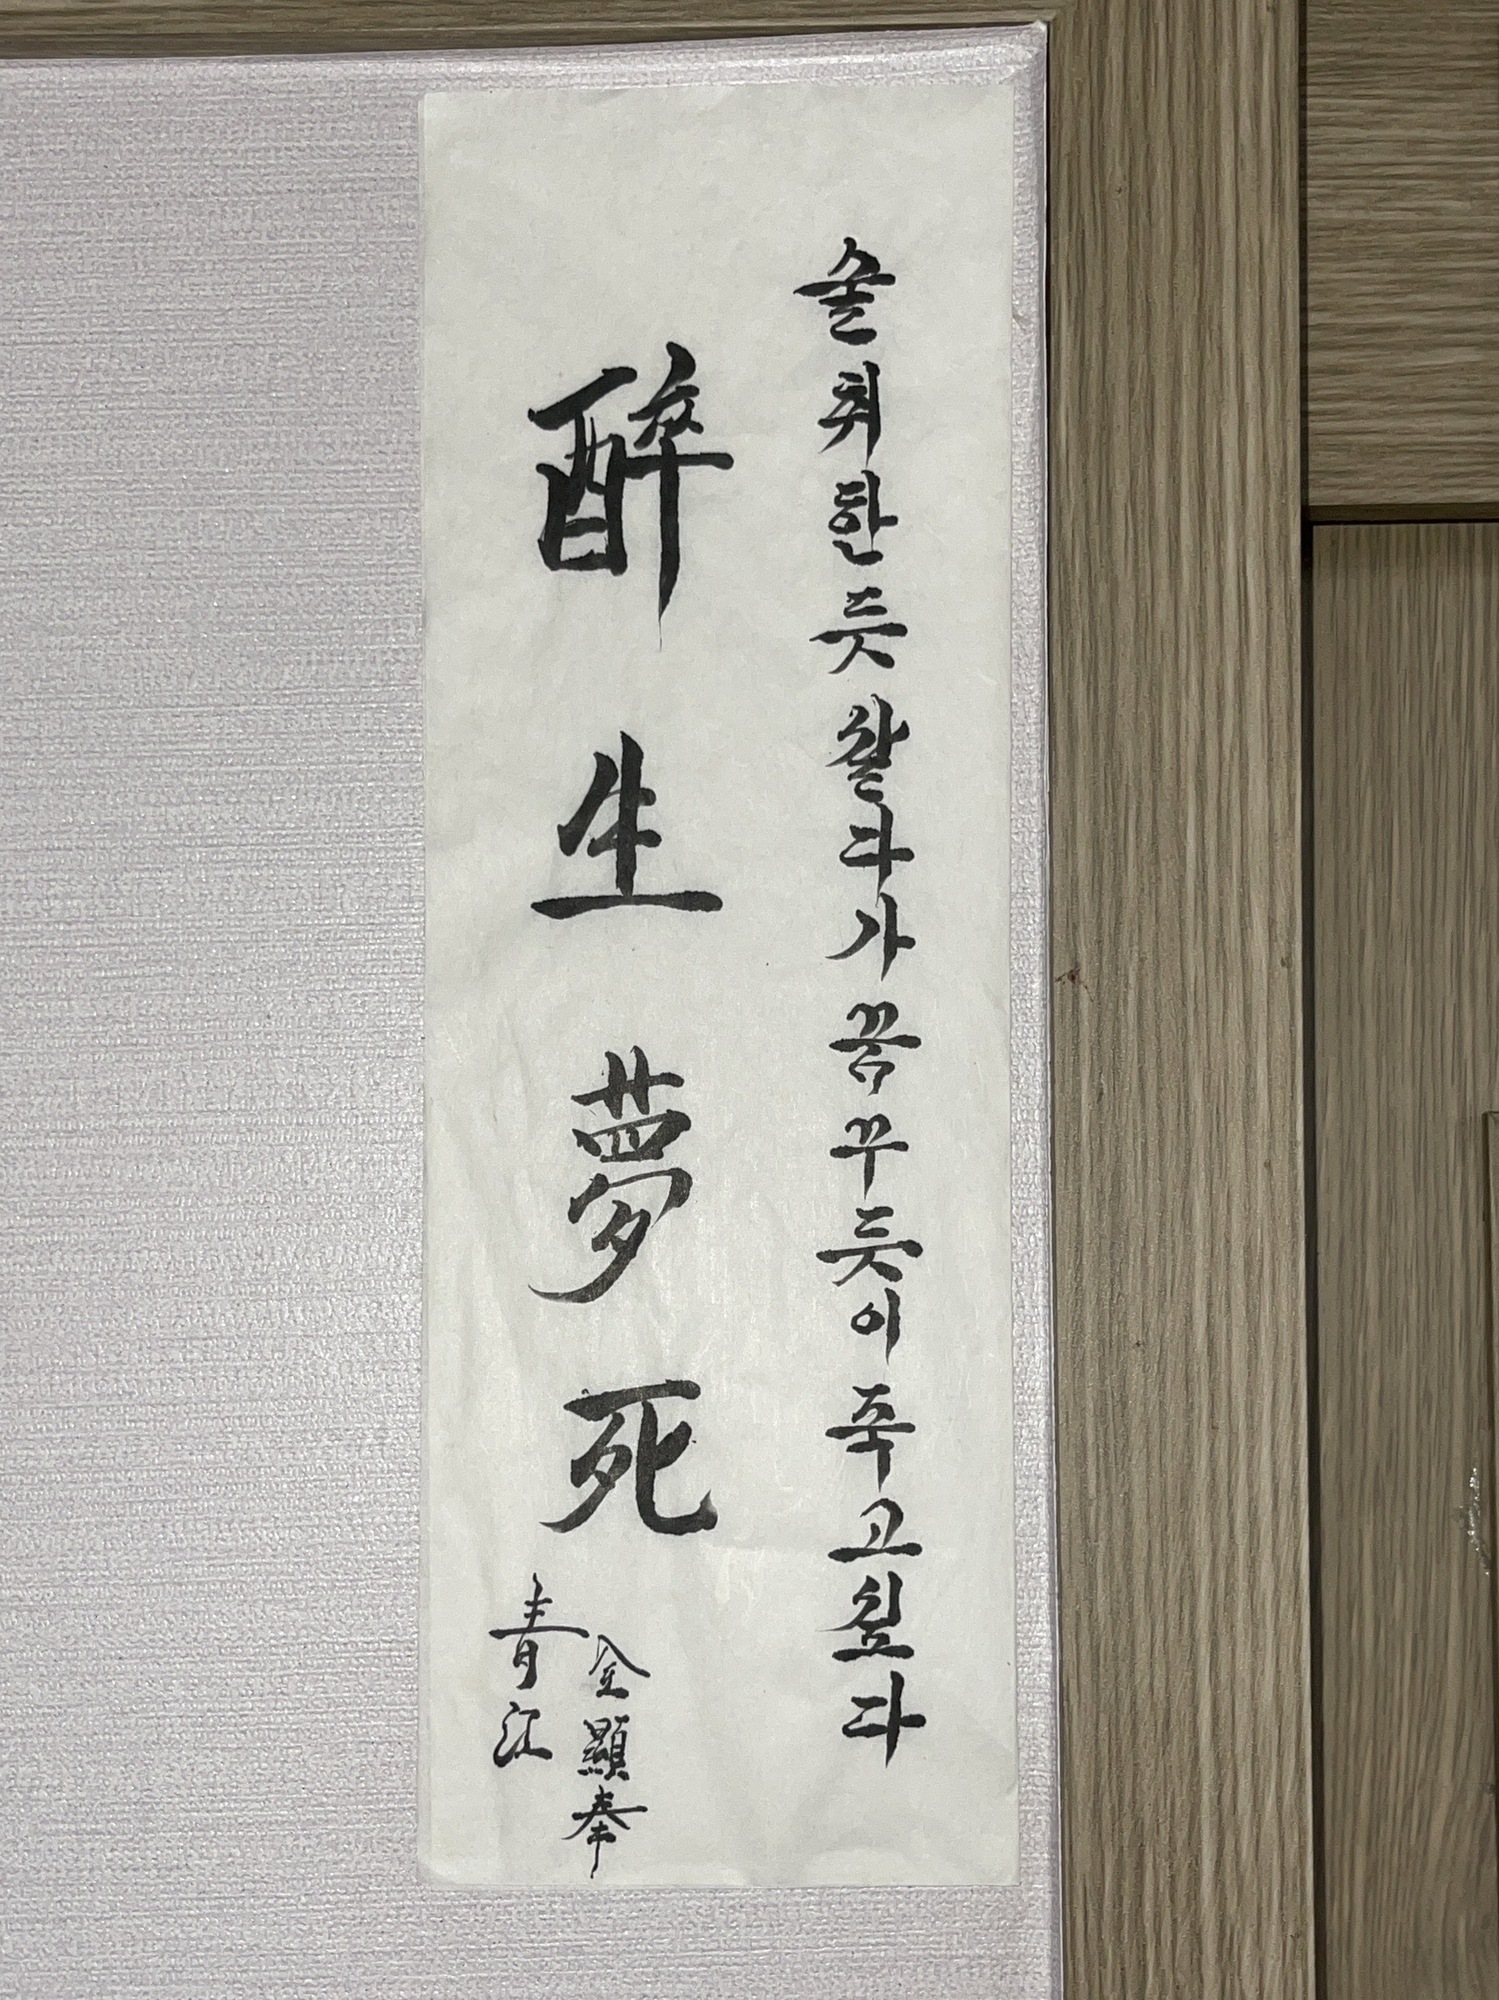 술취한 듯 살다가 꿈꾸듯이 죽고싶다
醉生夢死
金顯奉
青江